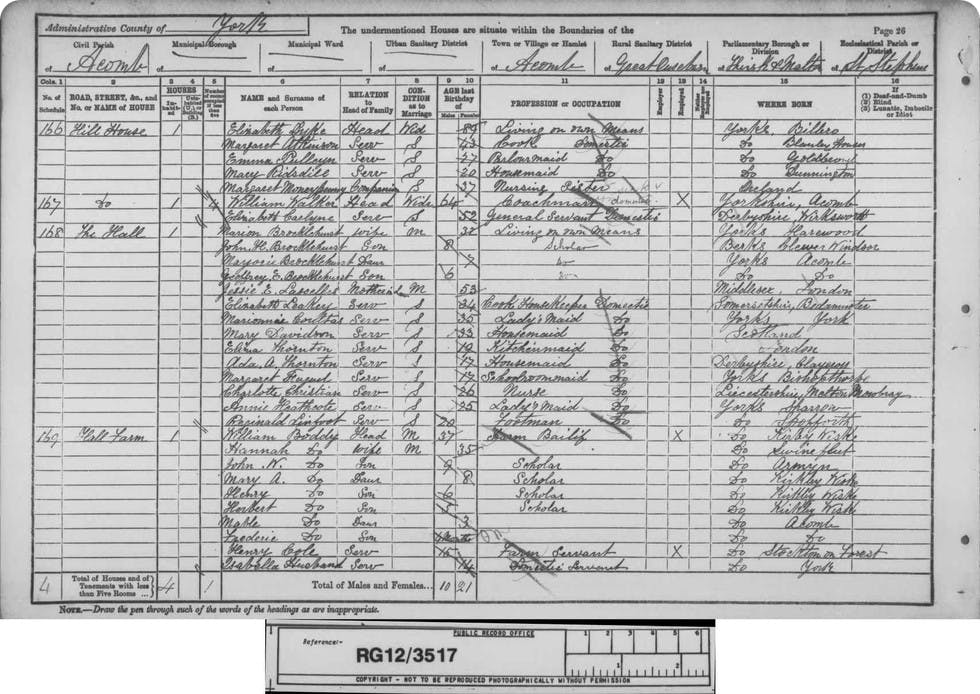 Administrative County of York
The undermentioned Houses are situate within the Boundaries of the
Page 26
Civil Parish of Acomb
Municipal Borough of
Municipal Ward of
Urban Sanitary District of
Town or Village or Hamlet of Acomb
Rural Sanitary District of Great Ouseburn
Parliamentary Borough or Division of Thirsk & Malton
Ecclesiastical Parish or District of St Stephens
Cols. 1 2 3 4 5 6 7 8 9 10 11 12 13 14 15 16
No. of Schedule
ROAD, STREET, &c., and No. or NAME of HOUSE
HOUSES
Inhabited
Uninhabited (U.), or Building (B.)
Number of rooms occupied if less than five
NAME and Surname of each Person
RELATION to Head of Family
CONDITION as to Marriage
AGE last Birthday of
Males Females
PROFESSION or OCCUPATION
Employer
Employed
Neither Employer nor Employed
WHERE BORN
If (1) Deaf-and-Dumb (2) Blind (3) Lunatic, Imbecile or Idiot
166 Hill House 1 Elizabeth Dyke Head Wid 89 Living on own Means Yorks
Margaret Atkinson Serv S 43 Cook Domestic Do
Emma Pulleyn Serv S 27 Parlourmaid Do Do
Mary Ridsdill Serv S 20 Housemaid Do Do Dunnington
Margaret Moneypenny Companion S 37 Nursing Sister Ireland
167 Do 1 4 William Walker Head Wid 64 Coachman domestic X Yorkshire, Acomb
Elizabeth Serv S 52 General Servant Domestic Derbyshire, Wirksworth
168 The Hall 1 Marion Brocklehurst Wife M 32 Living on own Means Yorks Harewood
John H. Brocklehurst Son 8 Scholar Berks Clewer Windsor
Marjorie Brocklehurst Daur 7 Do Yorks Acomb
Geoffrey E. Brocklehurst Son 6 Do Do Do
Jessie E. Lascelles M 53 Middlesex, London
Elizabeth Leakey Serv S 34 Cook Housekeeper Domestic Somersetshire, Bedminster
Serv S 35 Lady's Maid Do Yorks York
Mary Davidson Serv S 33 Housemaid Do Scotland
Thornton Serv S 19 Kitchenmaid Do London
Ada. A. Thornton Serv S 17 Housemaid Do Derbyshire
Margaret Serv S 17 Schoolroommaid Do Yorks Bishopthorpe
Charlotte Christian Serv S 26 Nurse Do Leicestershire, Melton Mowbray
Annie Heathcote Serv S 25 Lady's Maid Do Yorks Sharrow
Reginald Linfoot Serv S 20 Footman Do Do Spofforth
169 Hall Farm 1 William Boddy Head M 37 Farm Bailif X Do Kirby Wiske
Hannah Do Wife M 35 Do
John N. Do Son 9 Scholar Do Armyn
Mary A. Do Daur 8 Scholar Do Kirkley Wiske
Henry Do Son 6 Scholar Do Kirkley Wiske
Herbert Do Son 5 Scholar Do Kirkley Wiske
Mable Do Daur 3 Do Acomb
Frederic Do Son Do Do
Henry Cole Serv 15 Farm Servant X Do Stockton on Forest
Isabella Husband Serv 14 Domestic Servant Do York
4 Total of Houses and of Tenements with less than Five Rooms ... 4 1 Total of Males and Females... 10 21
NOTE.—Draw the pen through such of the words of the headings as are inappropriate.
PUBLIC RECORD OFFICE
Reference:-
RG12/3517
1 2 3 4 5 6
1 2
COPYRIGHT - NOT TO BE REPRODUCED PHOTOGRAPHICALLY WITHOUT PERMISSION